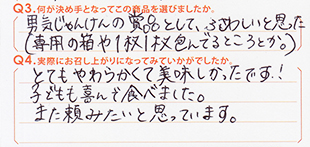 Q3.何が決め手となってこの商品を選びましたか。
男気じゃんけんの賞品として、ふさわしいと思った
(専用の箱や1枚1枚包んでるところとか。)
Q4.実際にお召し上がりになってみていかがでしたか。
とてもやわらかくて美味しかったです!
子どもも喜んで食べました。
また頼みたいと思っています。